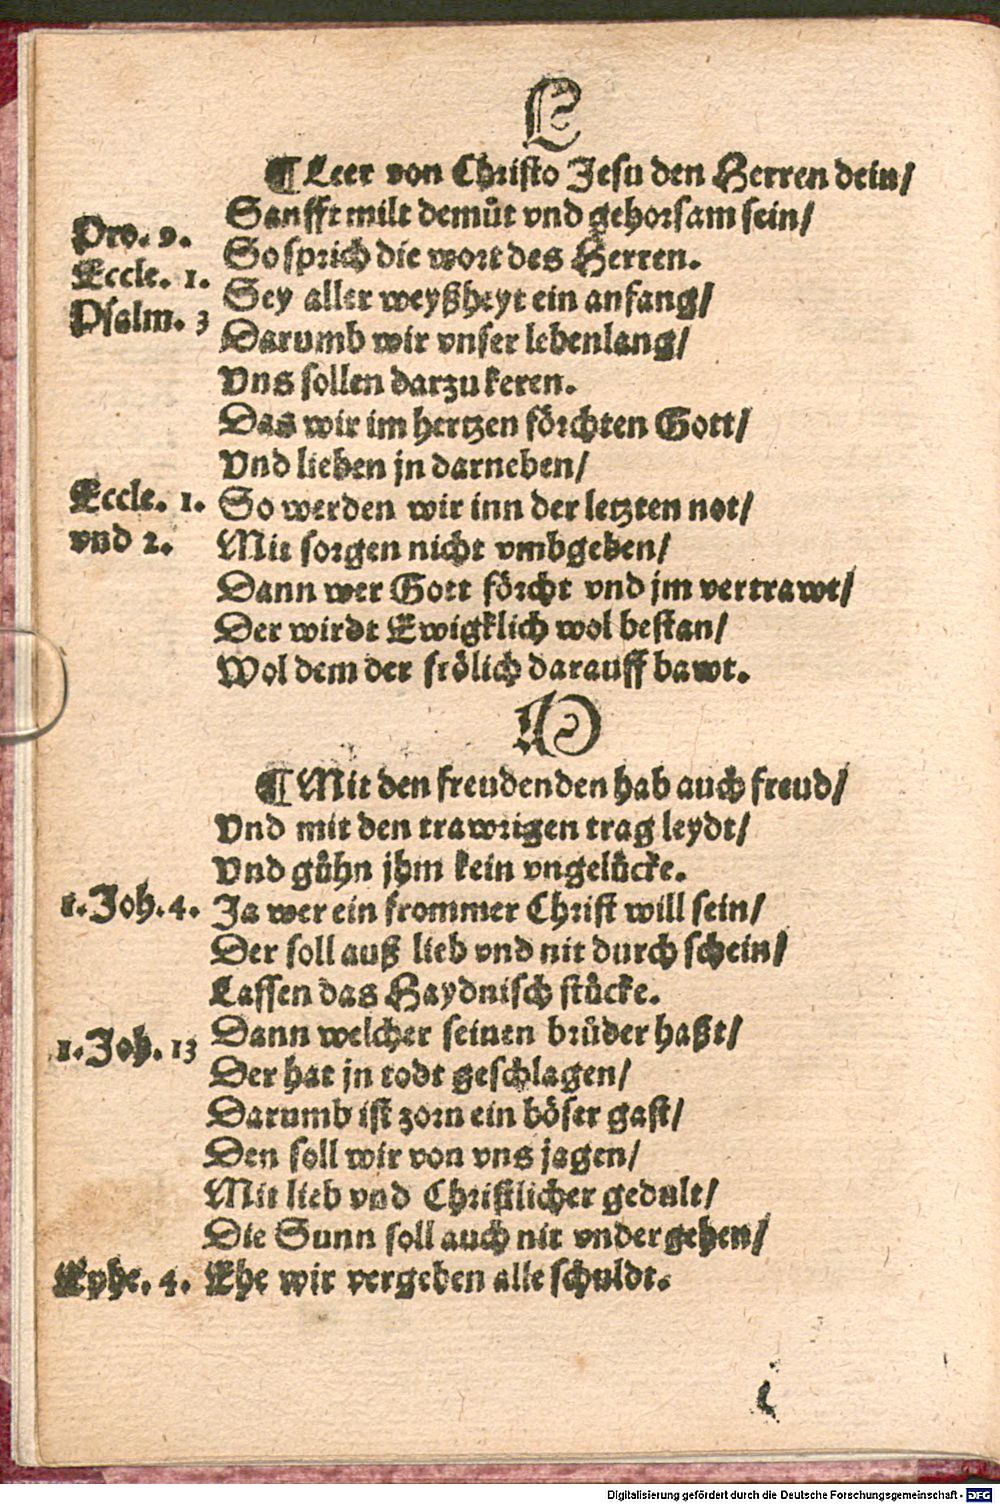 L
¶ Leer von Christo Jesu den Herren dein/
Sanfft milt demůt vnd gehorsam sein/
Pro. 9.
So sprich die wort des Herren.
Eccle. 1.
Sey aller weyßheyt ein anfang/
Psalm. 3
Darumb wir vnser lebenlang/
Vns sollen darzu keren.
Das wir im hertzen förchten Gott/
Vnd lieben jn darneben/
Eccle. 1.
So werden wir inn der letzten not/
vnd 2.
Mit sorgen nicht vmbgeben/
Dann wer Gott förcht vnd jm vertrawt/
Der wirdt Ewigklich wol bestan/
Wol dem der frölich darauff bawt.
M
¶ Mit den freudenden hab auch freud/
Vnd mit den trawrigen trag leydt/
Vnd gůhn jhm kein vngelücke.
1. Joh. 4.
Ja wer ein frommer Christ will sein/
Der soll auß lieb vnd nit durch schein/
Lassen das Haydnisch stücke.
1. Joh. 13
Dann welcher seinen brüder haßt/
Der hat jn todt geschlagen/
Darumb ist zorn ein böser gast/
Den soll wir von vns jagen/
Mit lieb vnd Christlicher gedult/
Die Sunn soll auch nit vndergehen/
Ephe. 4.
Ehe wir vergeben alle schuldt.
Digitalisierung gefördert durch die Deutsche Forschungsgemeinschaft - DFG